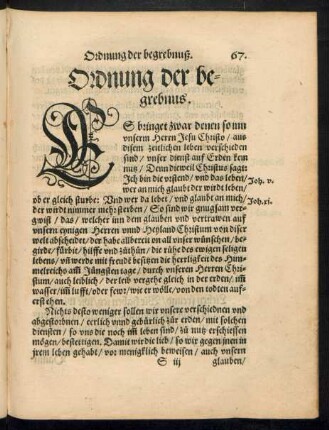 Ordnung der begrebnuß. 67.
Ordnung der be-
grebnus.
ES bringet zwar denen so inn
vnserm Herrn Jesu Christo / auß
disem zeitlichen leben verschieden
sind / vnser dienst auf Erden kein
nutz / Denn dieweil Christus sagt:
Ich bin die vrstend / vnd das leben /
wer an mich glaubt der wirdt leben /
Joh. v.
ob er gleich sturbe: Vnd wer da lebt / vnd glaubt an mich /
der wirdt nimmer mehr sterben / So sind wir gnugsam ver-
Joh. xi.
gwist / das / welcher inn dem glauben vnd vertrawen auf
vnsern eynigen Herren vnnd Heyland Christum von diser
welt abscheidet / der habe allbereit on all vnser wünschen / be-
girde / fürbit / hilffe vnd züthün / die rühe des ewigen seligen
lebens / vñ werde mit freuden besitzen die herrligkeit des Him-
melreichs am̃ Jüngsten tage / durch vnseren Herren Chri-
stum / auch leiblich / der leib vergehe gleich in der erden / im̃
wasser / im̃ luffte / oder fewr / wie er wölle / von den todten auf-
erstehen.
Nichts desto weniger sollen wir vnsere verschidnen vnd
abgestorbnen / eerlich vnnd gebürlich zür erden / mit solchen
diensten / so vns die noch im̃ leben sind / zü nutz erschiessen
mögen / bestettigen. Damit wir die lieb / so wir gegen jnen in
jrem leben gehabt / vor menigklich beweisen / auch vnsern
S iij glauben /